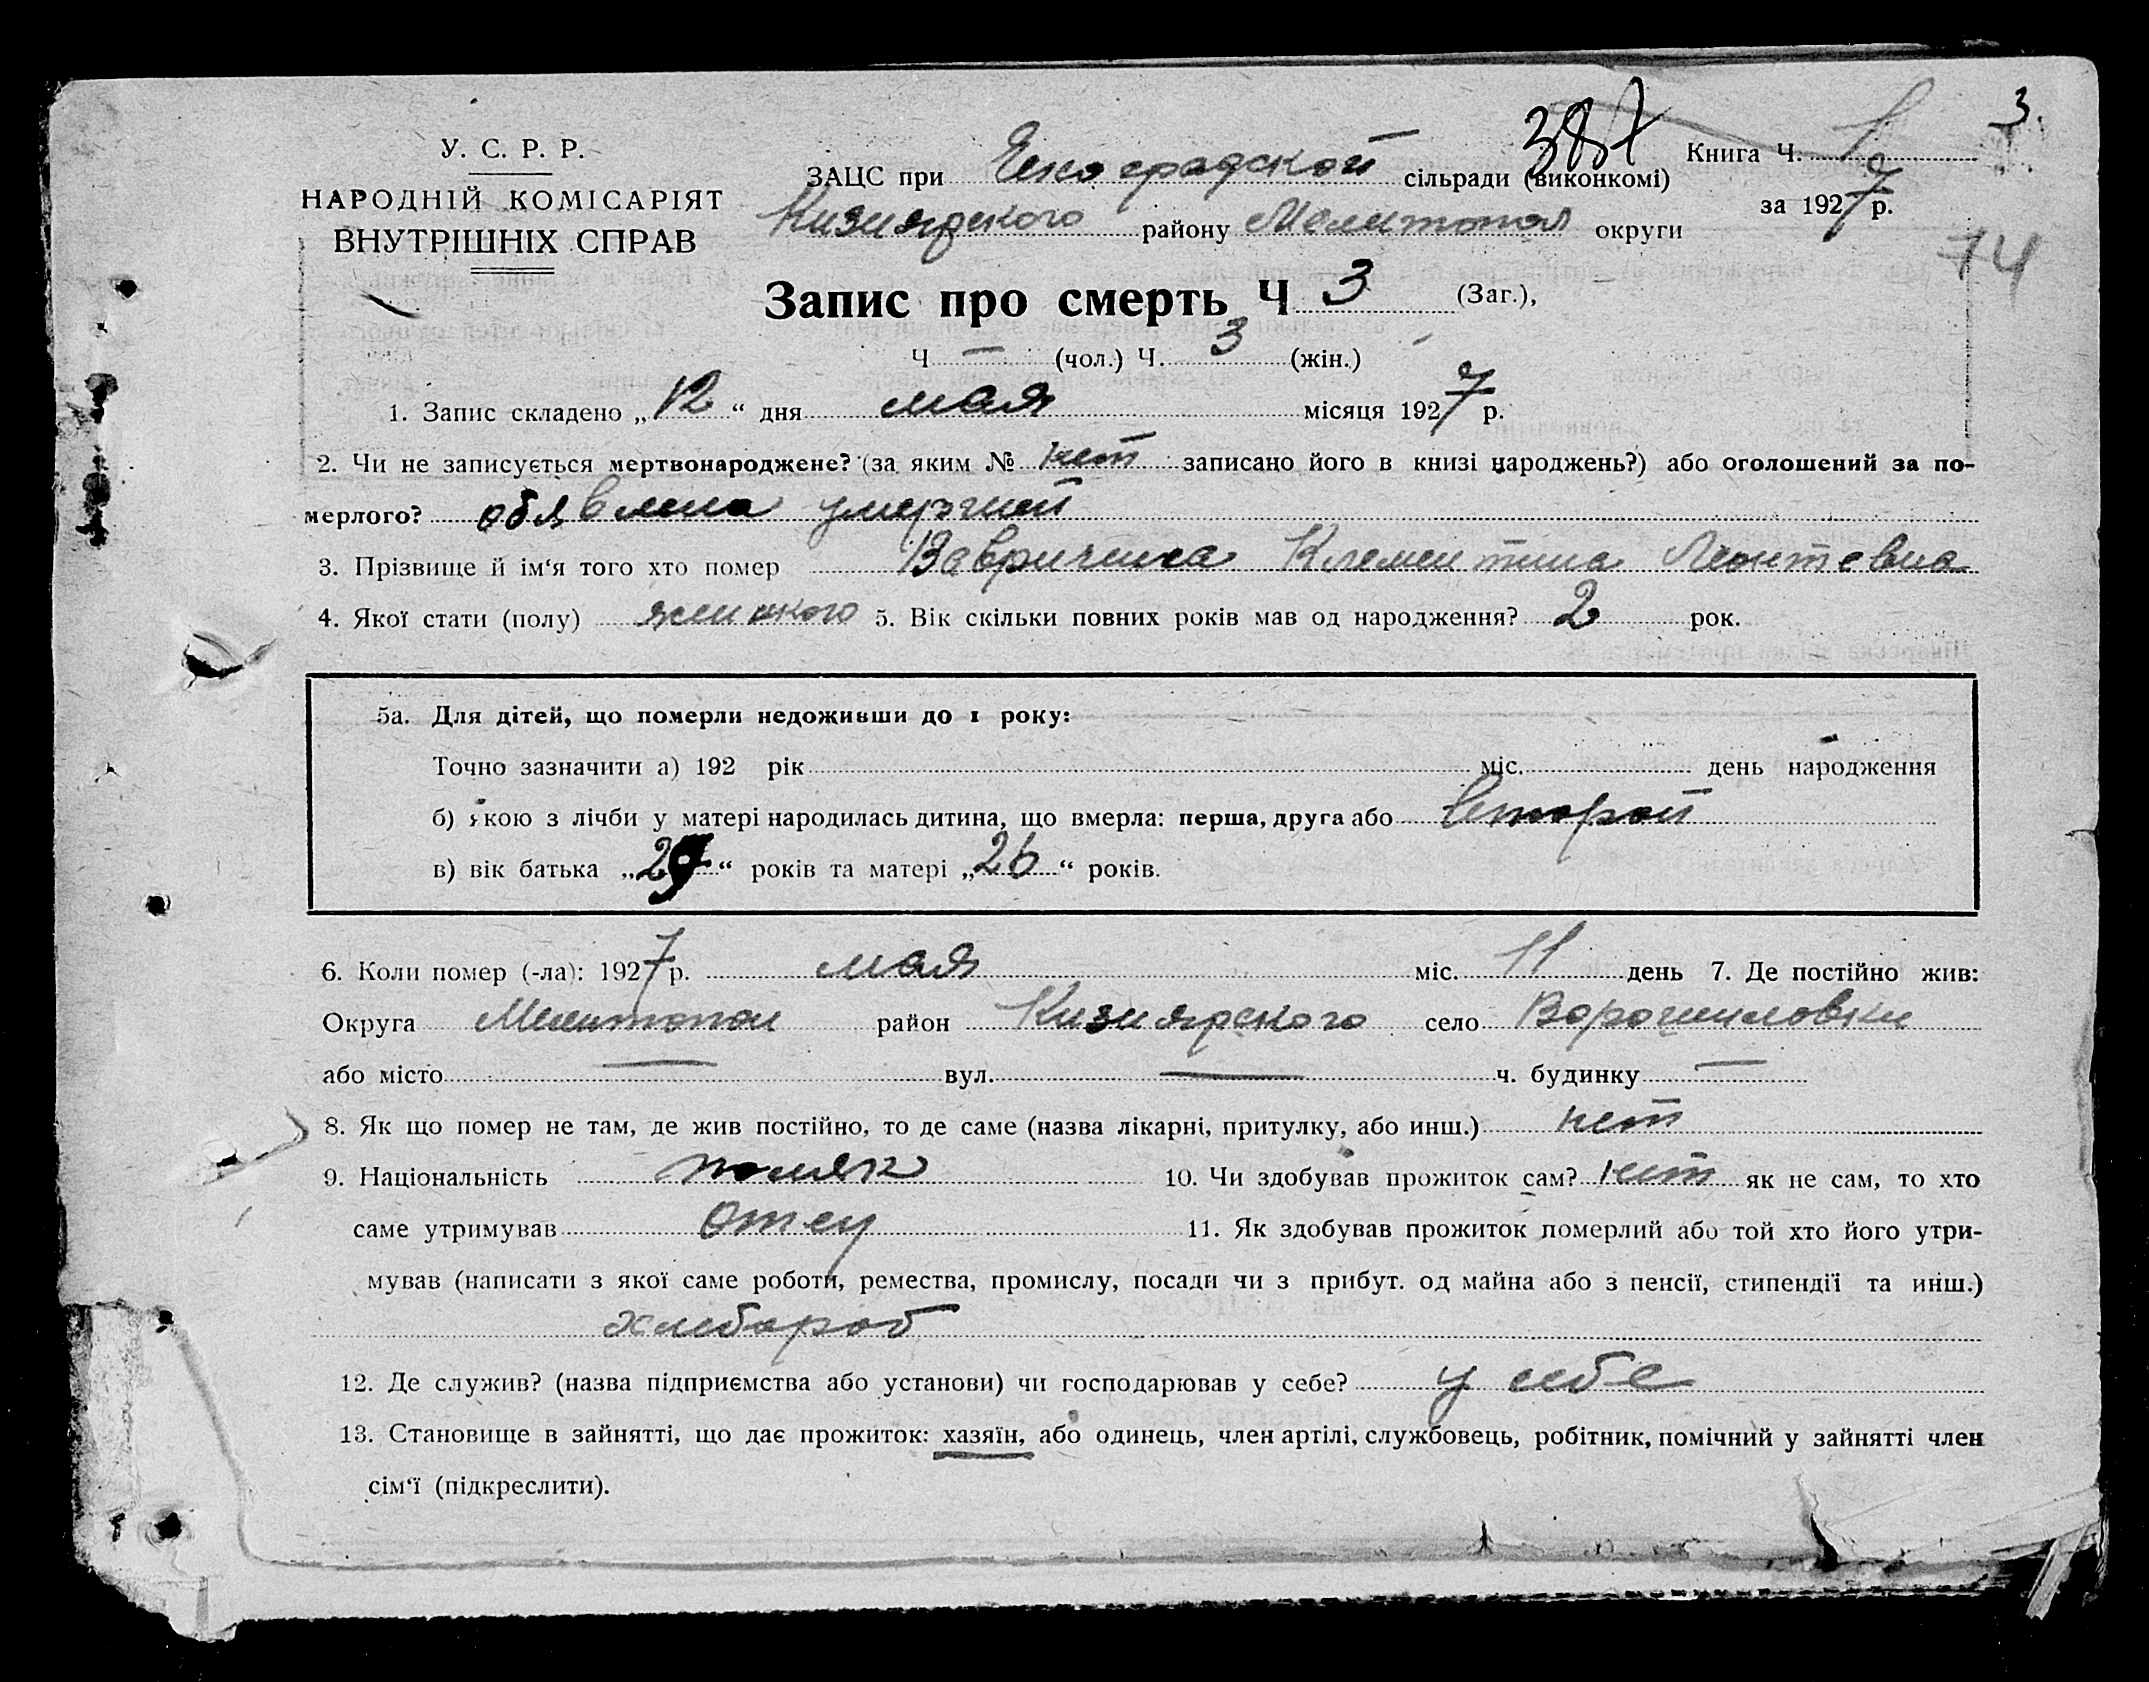 3.
387
У. С. Р. Р.
НАРОДНІЙ КОМІСАРІЯТ
ВНУТРІШНІХ СПРАВ
ЗАЦС при сільради (виконкомі)
Книга Ч. 1
Кизиярского району Мелитопол округи
за 1927 р.
74
Запис про смерть Ч 3 (Заг.),
Ч — (чол.) Ч. 3 (жін.)
1. Запис складено „12“ дня мая місяця 1927 р.
2. Чи не записується мертвонароджене? (за яким № нет записано його в книзі народжень?) або оголошений за по-
мерлого? обявлена умершей
3. Прізвище й ім‘я того хто помер Вавричина Клементина Леонтевна
4. Якої стати (полу) женского 5. Вік скільки повних років мав од народження? 2 рок.
5а. Для дітей, що померли недоживши до 1 року:
Точно зазначити а) 192 рік міс. день народження
б) якою з лічби у матері народилась дитина, що вмерла: перша, друга або второй
в) вік батька „29“ років та матері „26“ років.
6. Коли помер (-ла): 1927 р. мая міс. 11 день 7. Де постійно жив:
Округа Мелитопол район Кизиярского село Ворошиловки
або місто — вул. — ч. будинку —
8. Як що помер не там, де жив постійно, то де саме (назва лікарні, притулку, або инш.) нет
9. Національність поляк 10. Чи здобував прожиток сам? нет як не сам, то хто
саме утримував отец 11. Як здобував прожиток померлий або той хто його утри-
мував (написати з якої саме роботи, ремества, промислу, посади чи з прибут. од майна або з пенсії, стипендії та инш.)
хлебороб
12. Де служив? (назва підприємства або установи) чи господарював у себе? у себе
13. Становище в зайнятті, що дає прожиток: хазяїн, або одинець, член артілі, службовець, робітник, помічний у зайнятті член
сім‘ї (підкреслити).